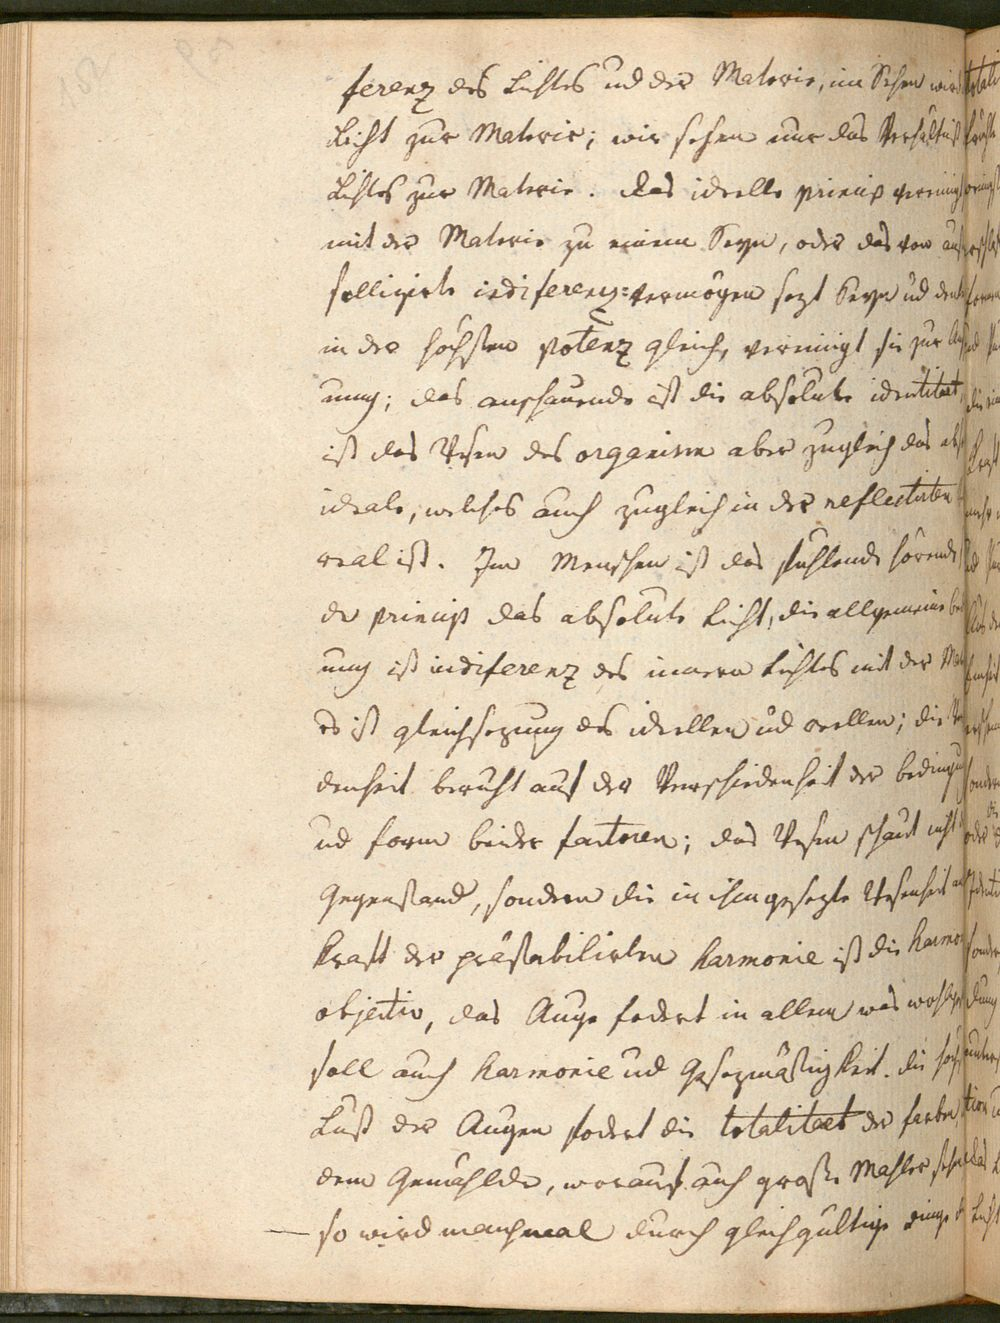 ferenz des Lichtes ud der Materie, im Sehen wird
Licht zur Materie; wir sehen nur das Verhältniß
Lichtes zur Materie. das ideelle princip vereinigt
mit der Materie zu einem Seyn, oder das von auß
sollizirte indiferenz=vermögen sezt Seyn ud denk
in der höchsten potenz gleich, vereinigt sie zur An
ung; das anschauende ist die absolute identitaet,
ist das Wesen des organism aber zugleich das abs
ideale, welches auch zugleich in der reflectirten
real ist. Im Menschen ist das fühlende hörende
de princip das absolute Licht, die allgemeine bed
ung ist indiferenz des innern Lichtes mit der Mat
es ist gleichsezung des ideellen ud reellen; die Ver
denheit beruht auf der Verschiedenheit der bedingu
ud form beider factoren; das Wesen schaut nicht
Gegenstand, sondern die in ihm gesezte Wesenheit an
Kraft der präßtabilirten harmonie ist die harmon
objectiv, das Auge fodert in allem was wohlge
soll auch harmonie ud Gesezmäßigkeit. die höch
Lust der Augen fodert die totalitaet der farben
dem Gemählde, worauf auch große Mahler sehen
so wird manchmal durch gleichgültige dinge